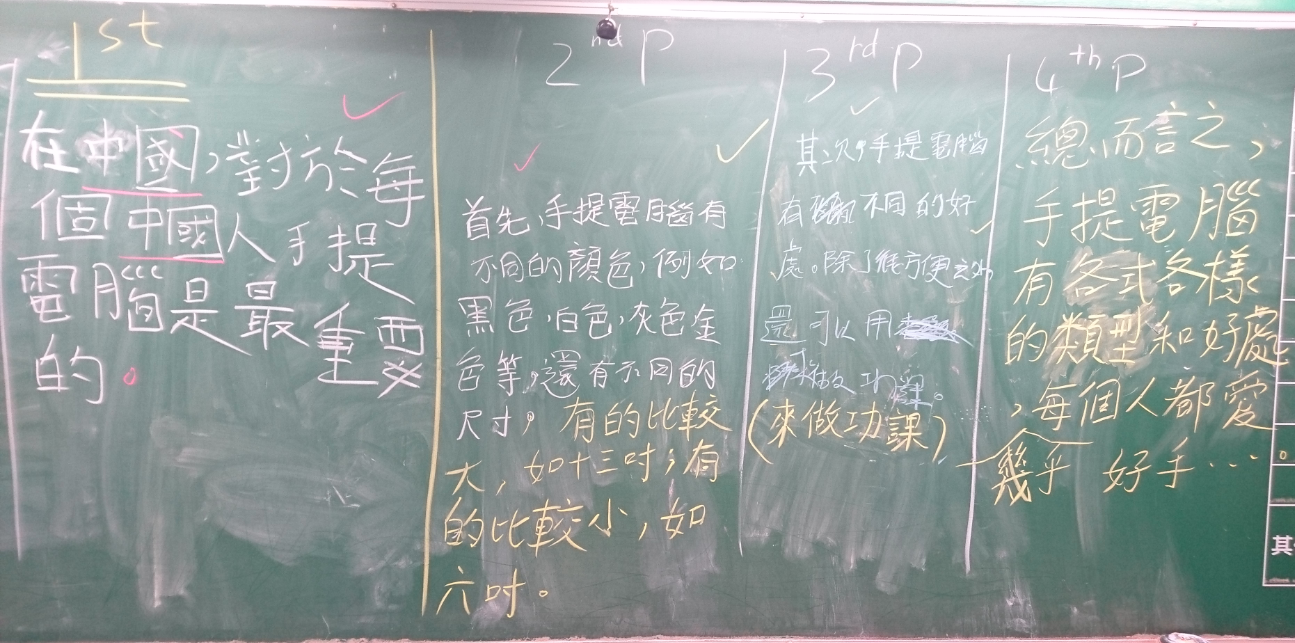 1st
在中國,對於每
個中國人手提
電腦是最重要
的。
2nd P
首先,手提電腦有
不同的顏色,例如
黑色,白色,灰色金
色等,還有不同的
尺寸。有的比較
大,如十三吋;有
的比較小,如
六吋。
3rd P
其次,手提電腦
有不同的好
處。除了能方便之外
還可以用
做功課。
(來做功課)
4th P
總而言之,
手提電腦
有各式各樣
的類型和好處
,每個人都愛
幾乎 好手…。
其